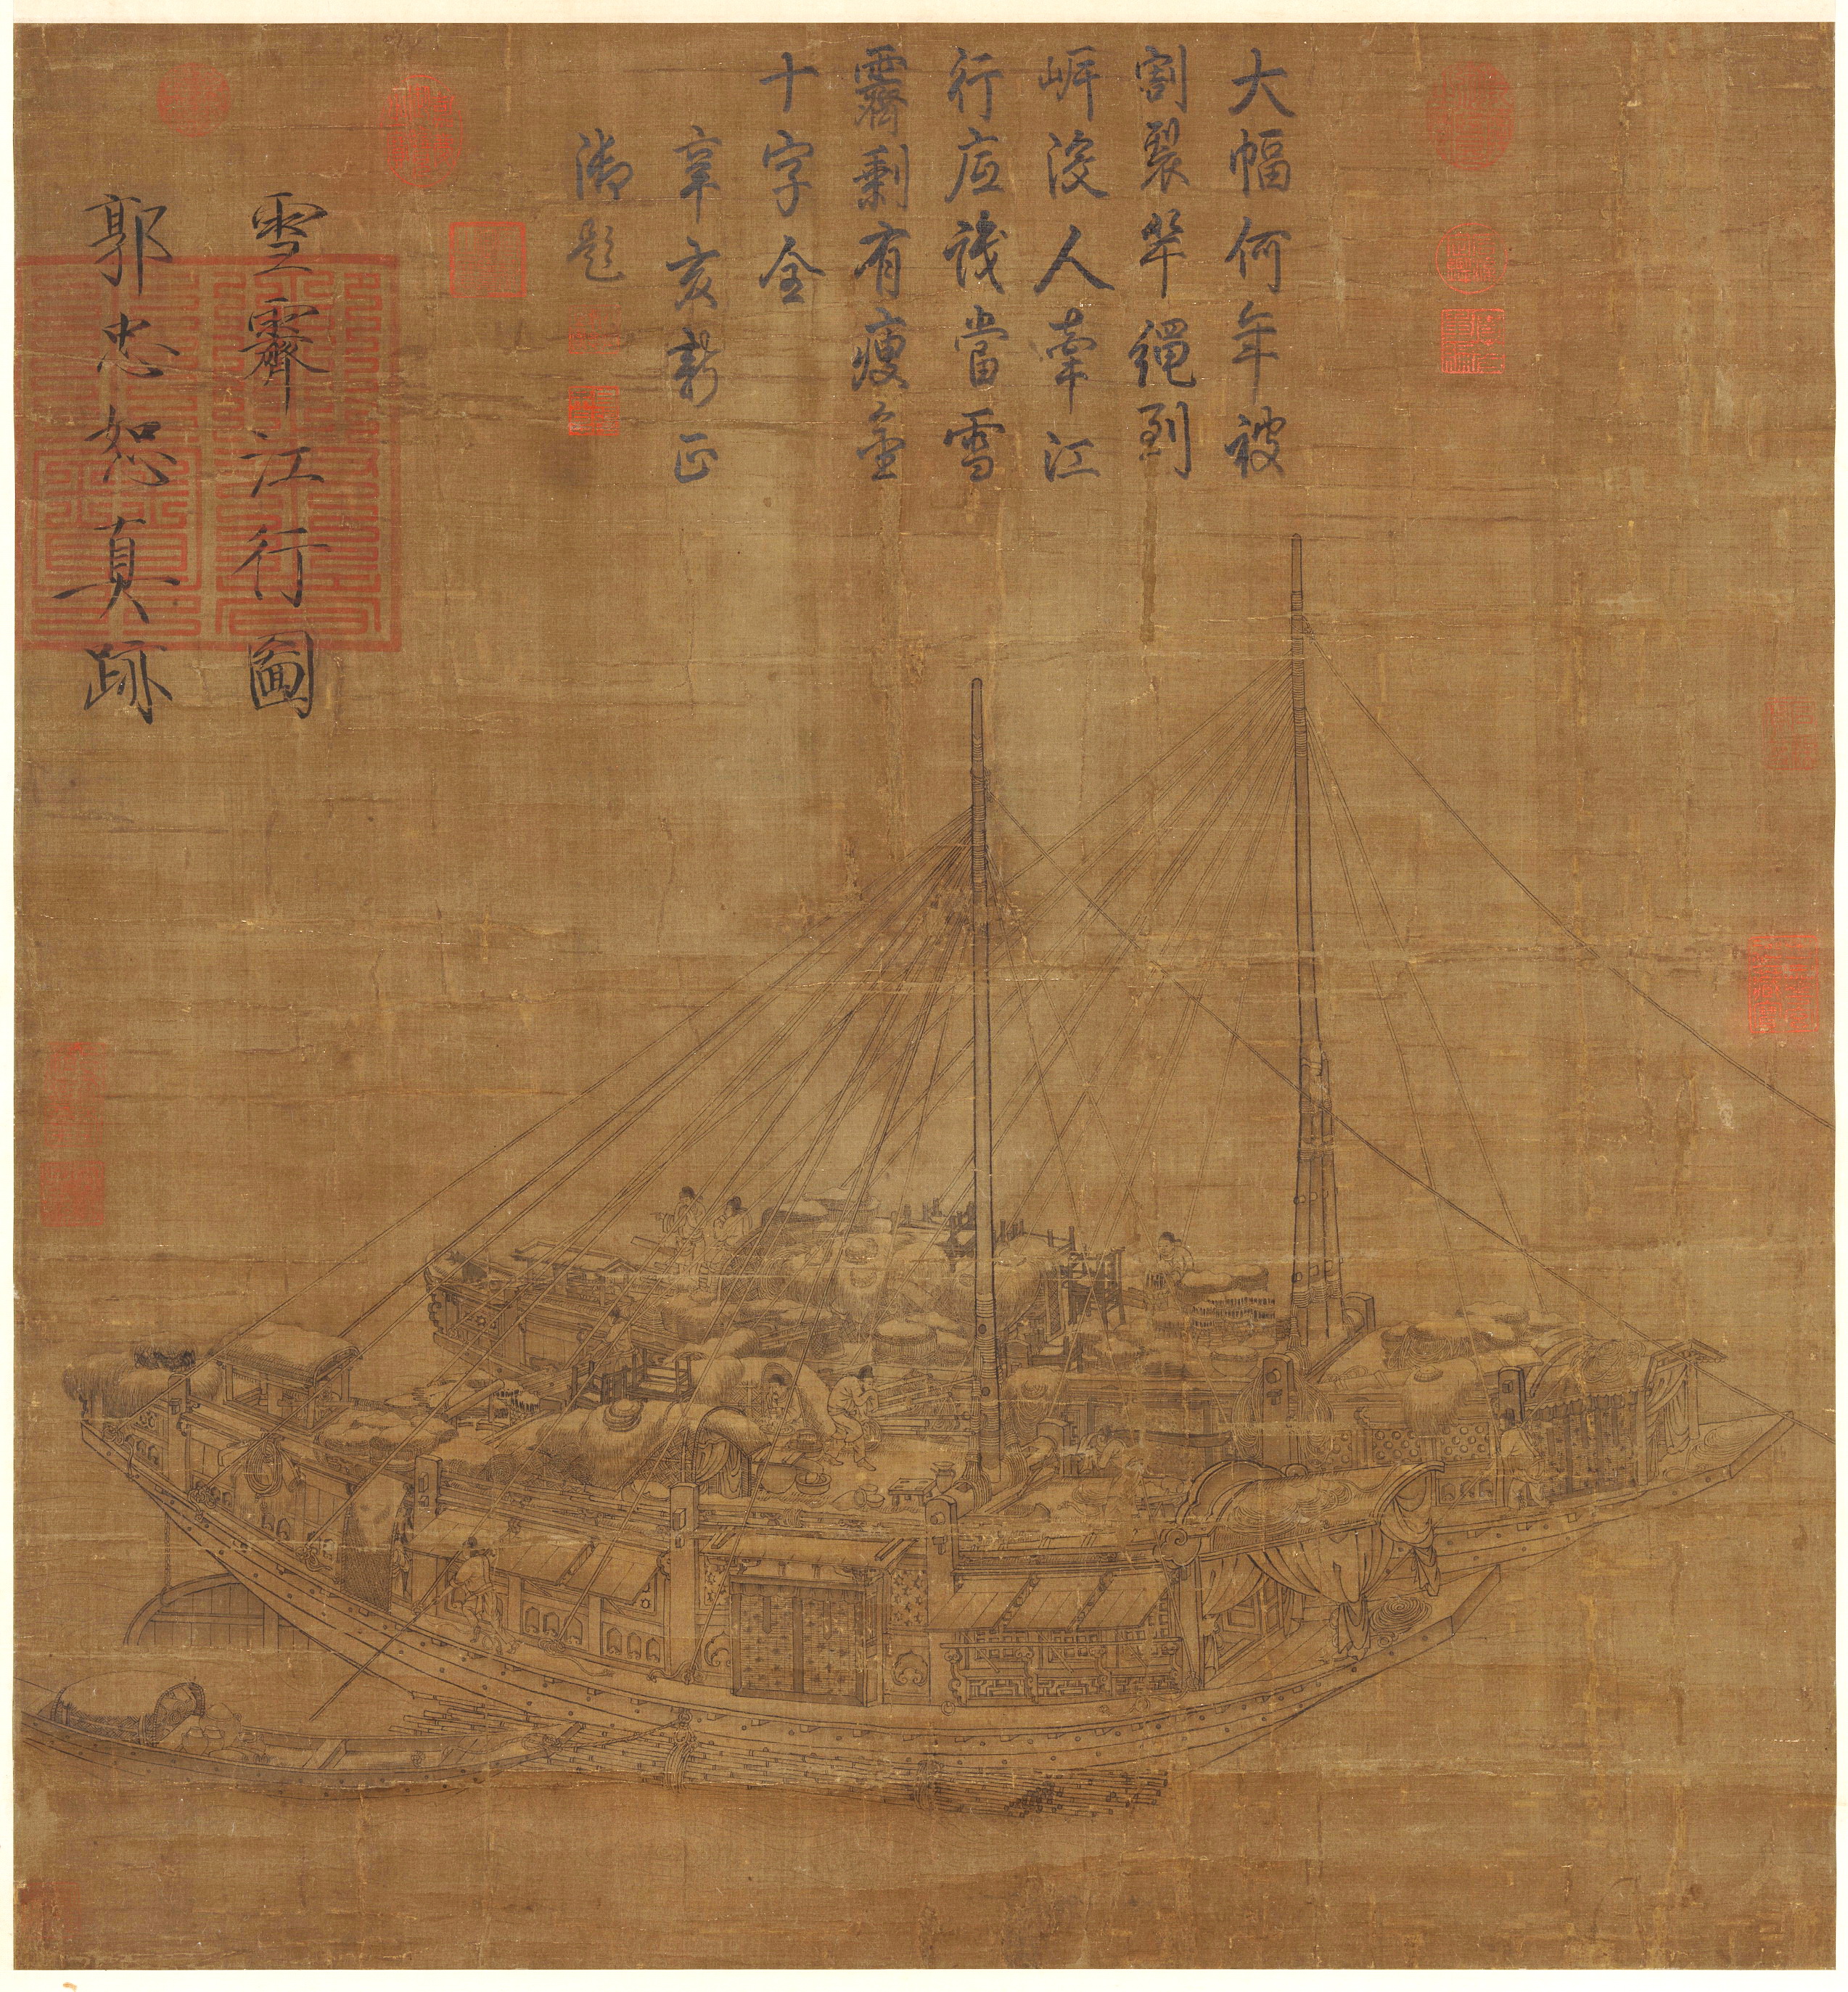 大幅何年被
割裂竿繩到
岸没人牽江
行應識當雪
霽剩有瘦金
十字全
辛亥新正
御題
雪霽江行圖
郭忠恕真跡